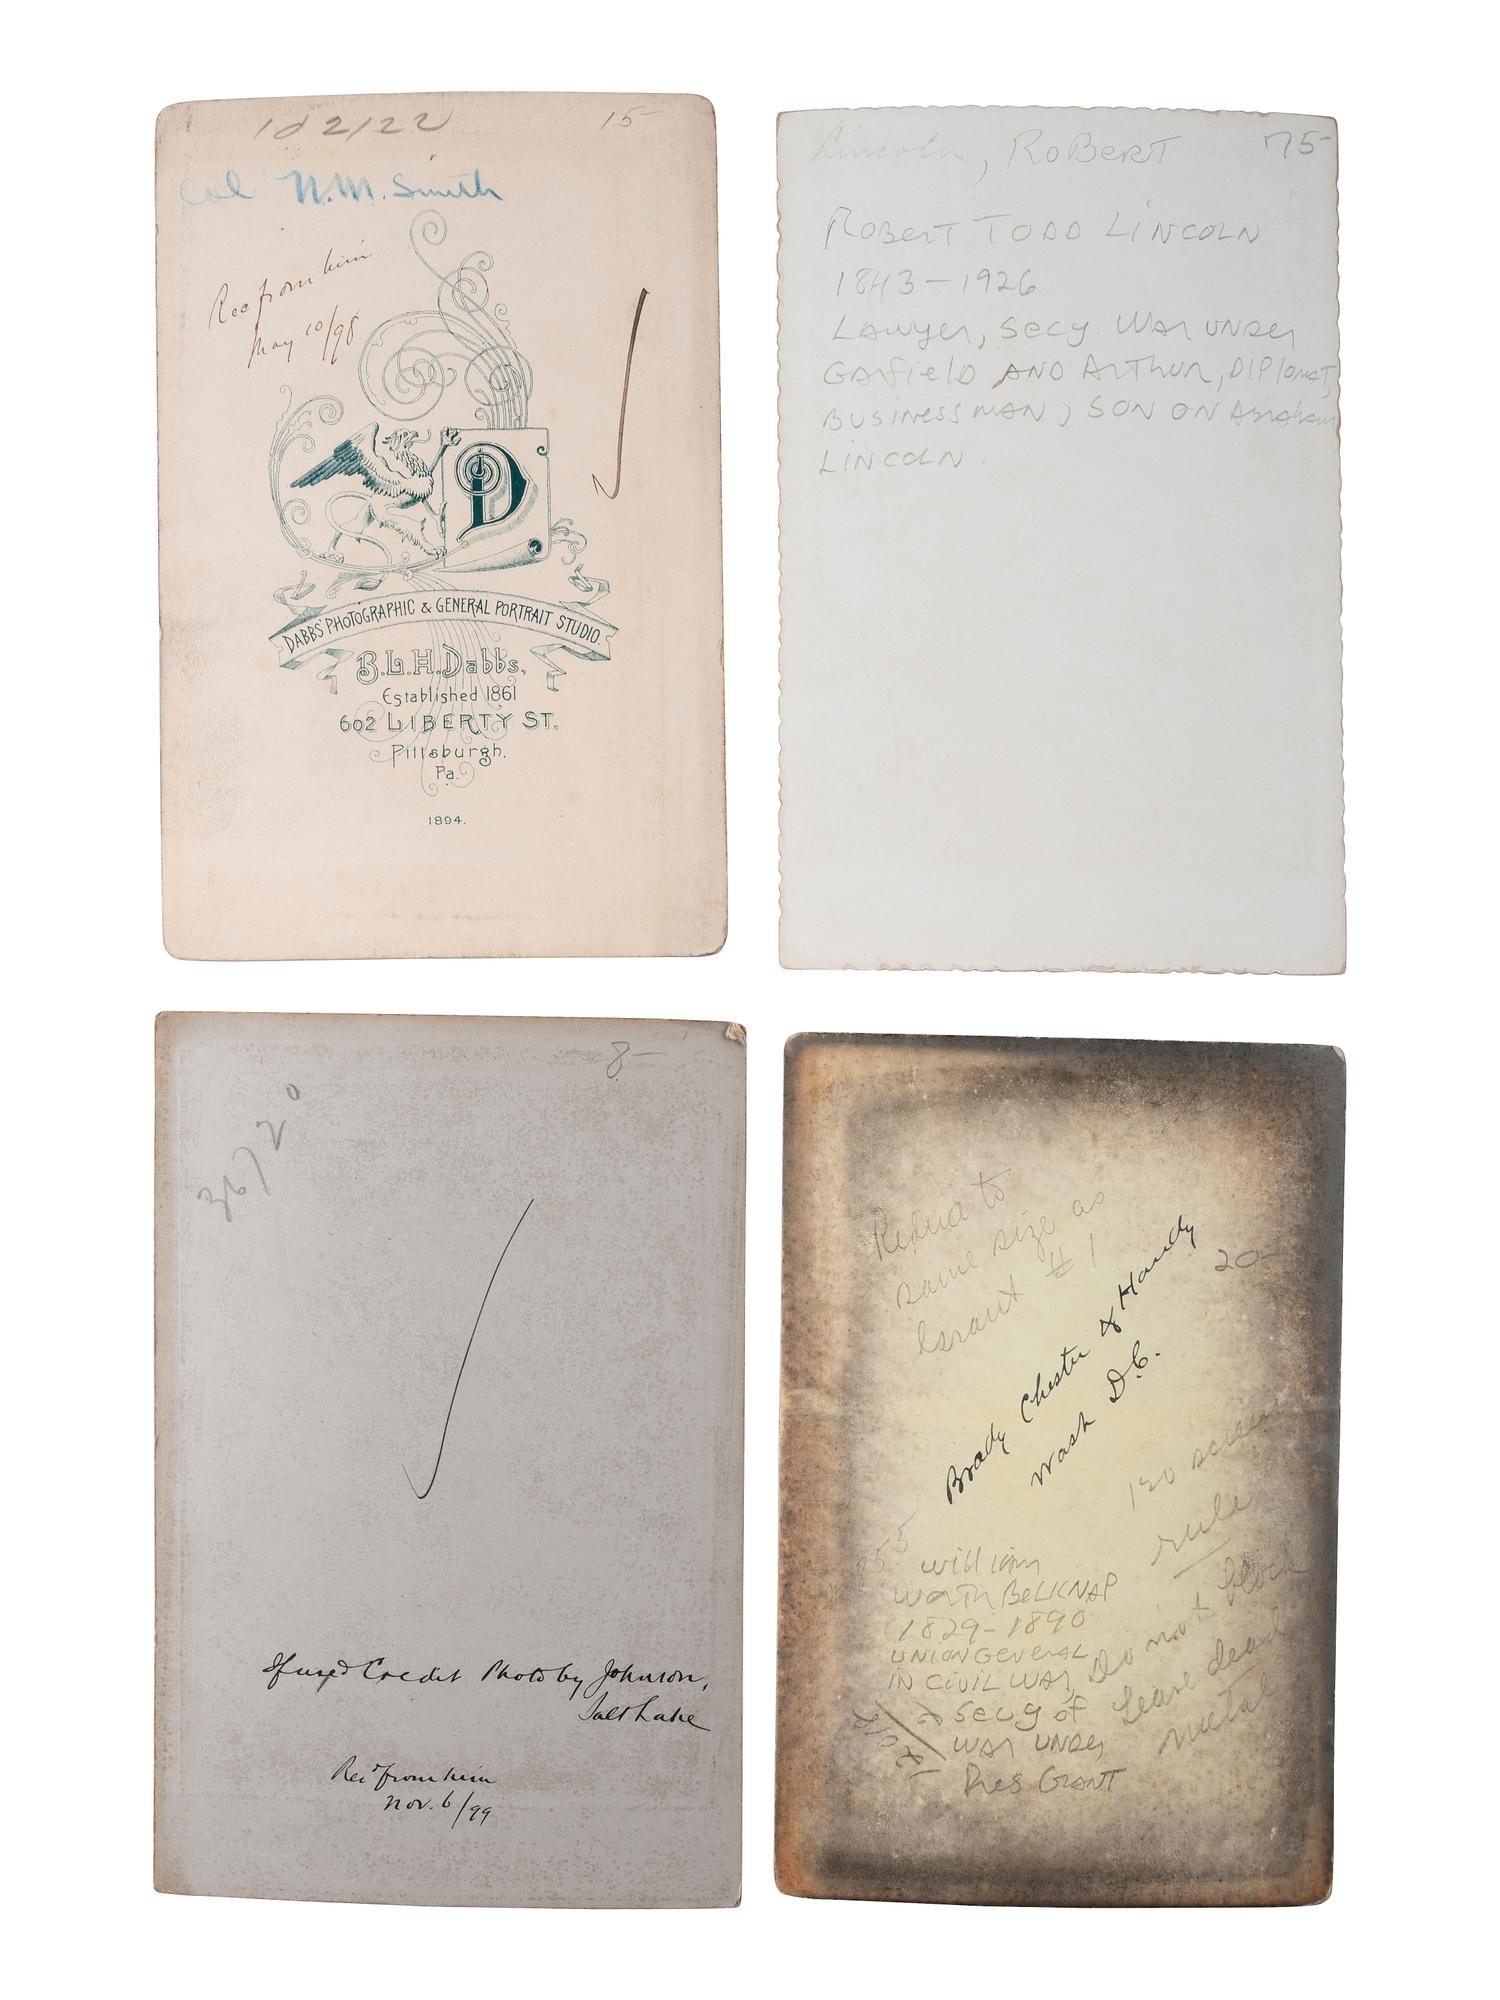 1d2122
15-
Col N.M. Smith
Rec from him
May 10/98
D
DABBS' PHOTOGRAPHIC & GENERAL PORTRAIT STUDIO.
B.L.H. Dabbs,
Established 1861
602 LIBERTY ST.
Pittsburgh,
Pa.
1894.
Lincoln, RoBERT
75-
RoBerT TODD LiNCOLN
1843-1926
LAwyer, Secy. WAr UNDer
GArfielD AND ArThur, DIPlomAT,
BUSINess mAN, SON ON AbrahAm
LINCOLN.
8-
36/20
If used Credit Photo by Johnson,
Salt Lake
Rec'd from him
Nov. 6/99
Reduce to
same size as
Grant #1
20-
Brady Chester & Handy
Wash D.C.
120 screen
rule
william
worth BeLKNAP
1829-1890
UNION GeNerAL
IN CIVIL WAr,
Secy of
WAr UNDer
Pres GrANT
Do not block
Leave dead
metal